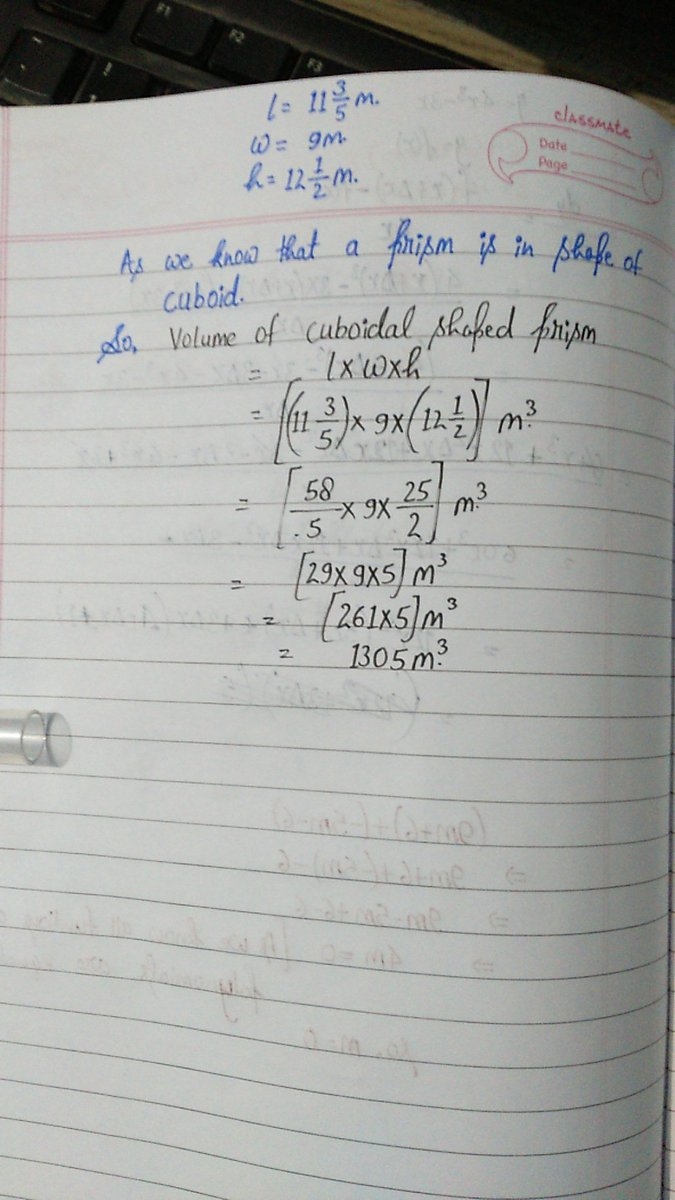 F1
F2
F3
l = 11 3/5 m.
w = 9m.
h = 12 1/2 m.
classmate
Date
Page
As we know that a prism is in shape of
cuboid.
So, Volume of cuboidal shaped prism
= l×w×h
= [(11 3/5)× 9×(12 1/2)] m³.
= [58/5 × 9× 25/2] m³.
= [29×9×5] m³
= [261×5] m³
= 1305 m³.